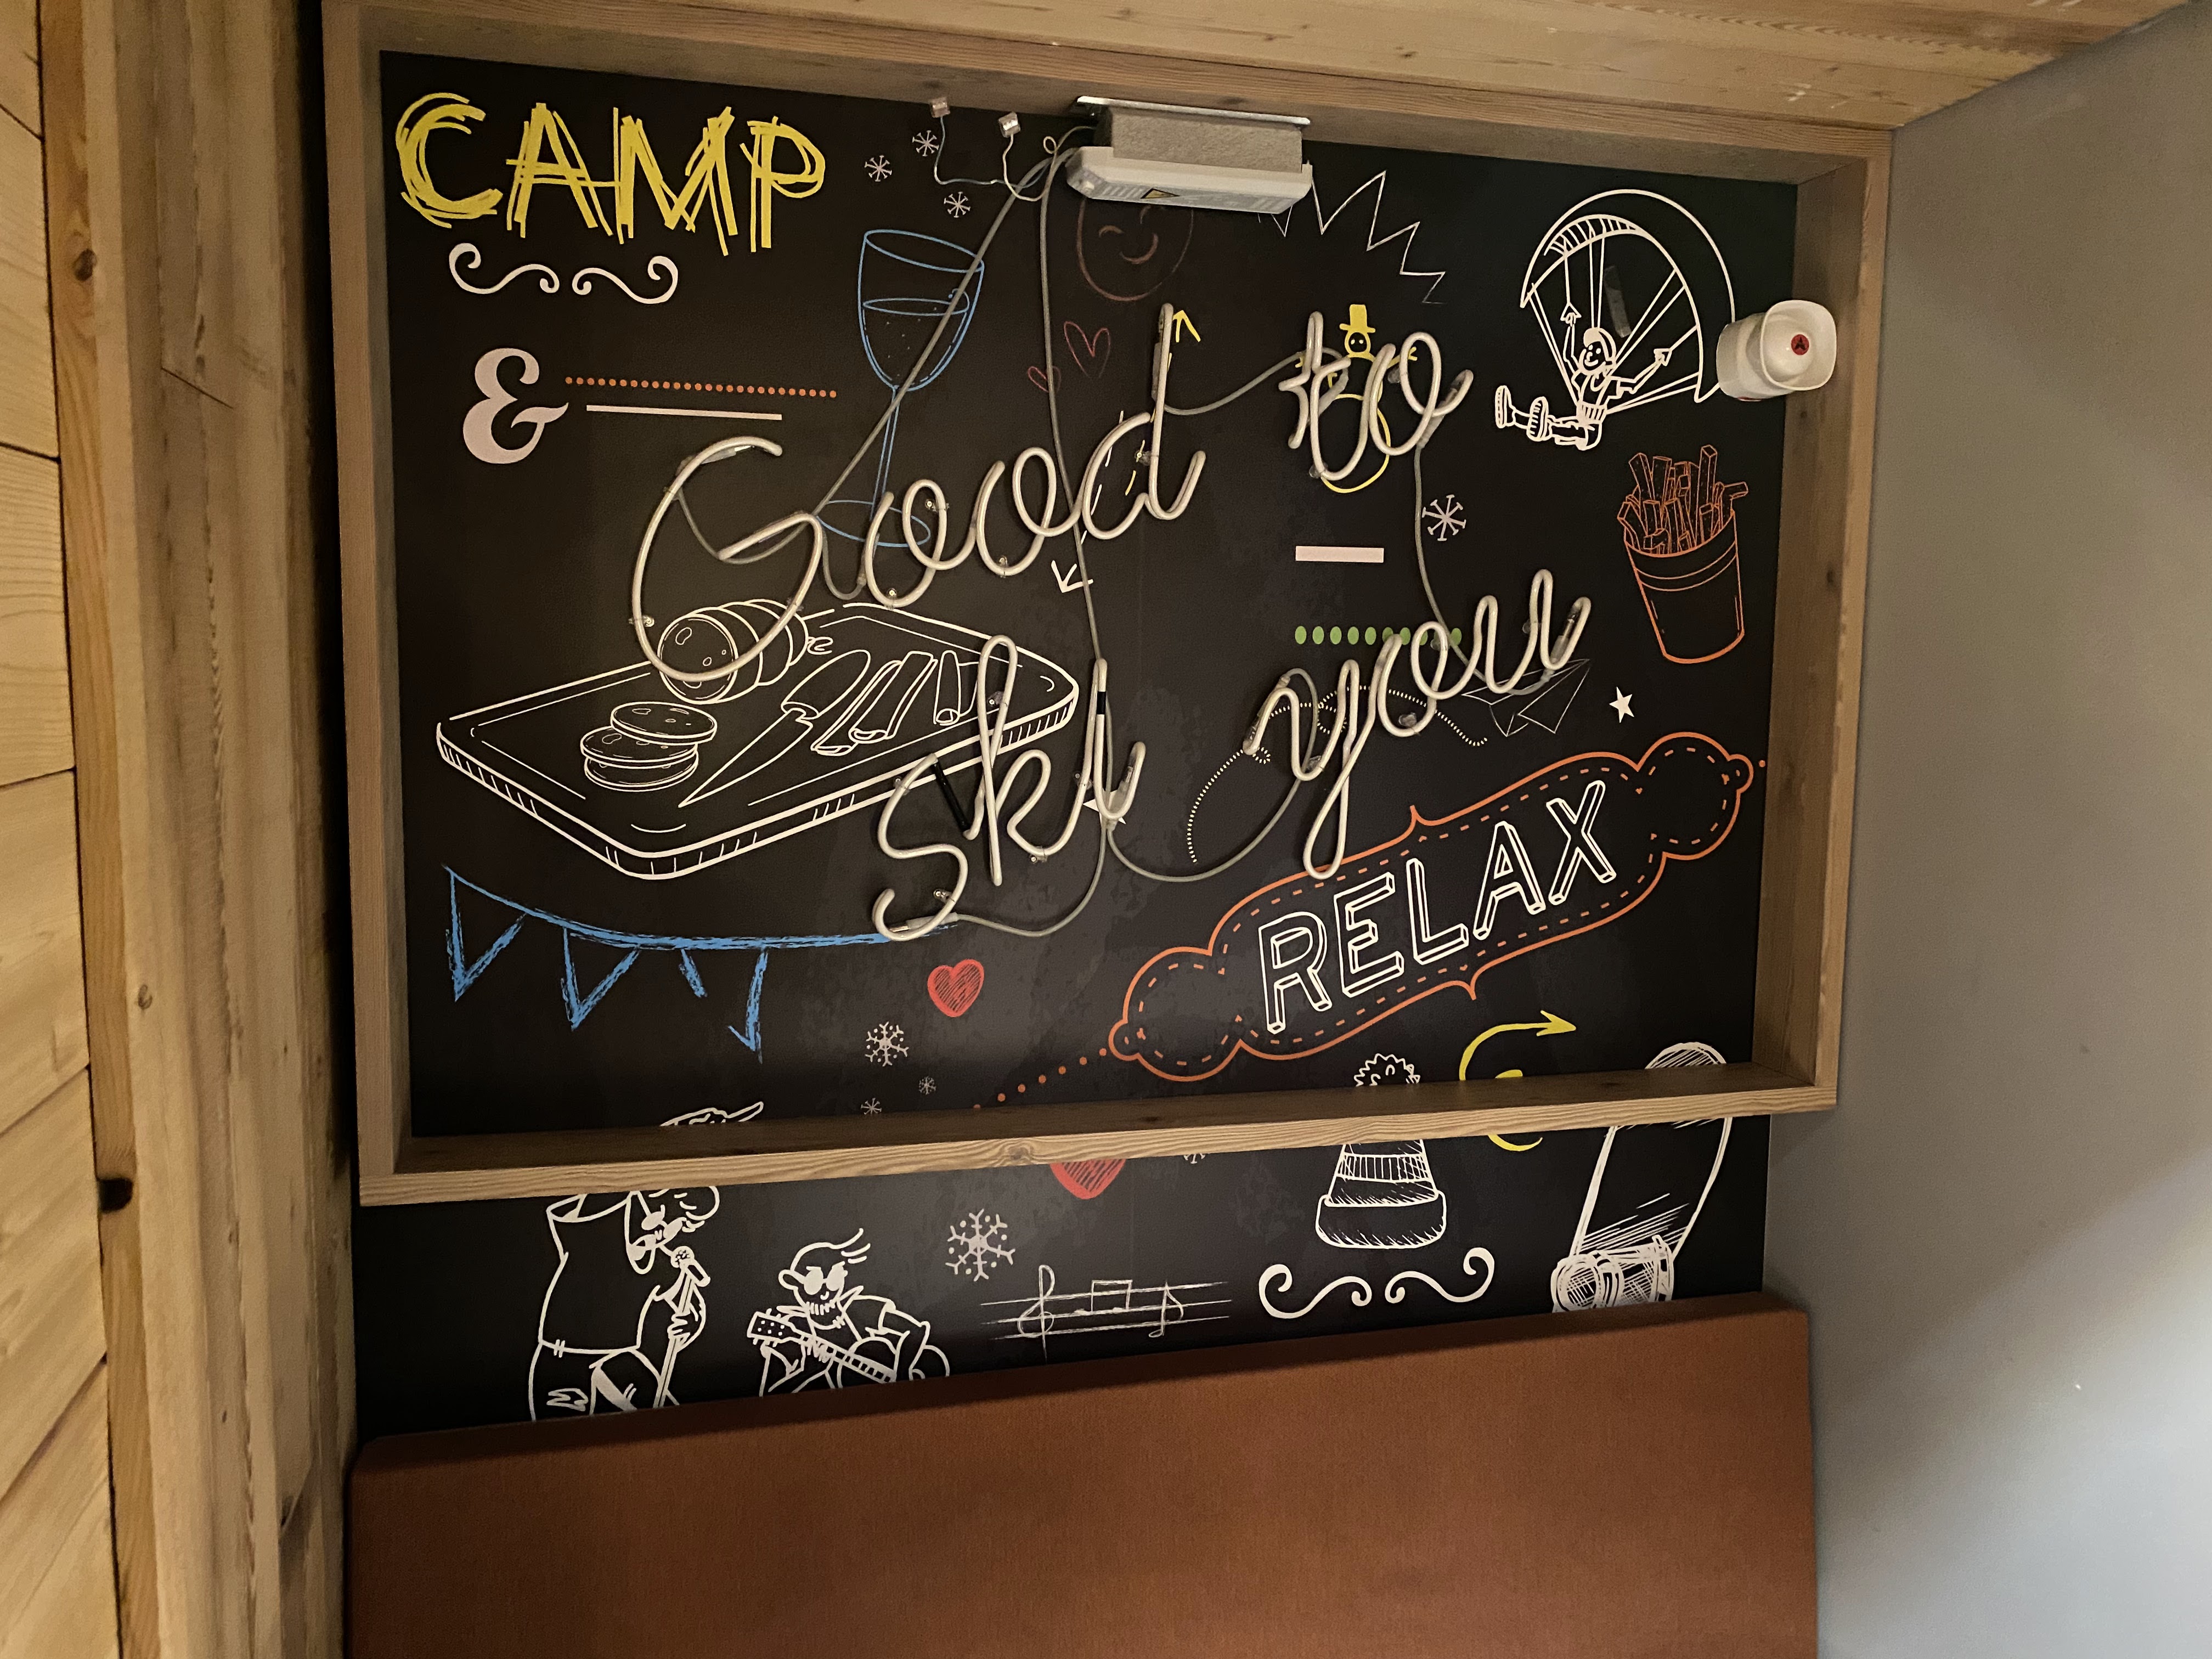 CAMP
&
Good to
ski you
RELAX